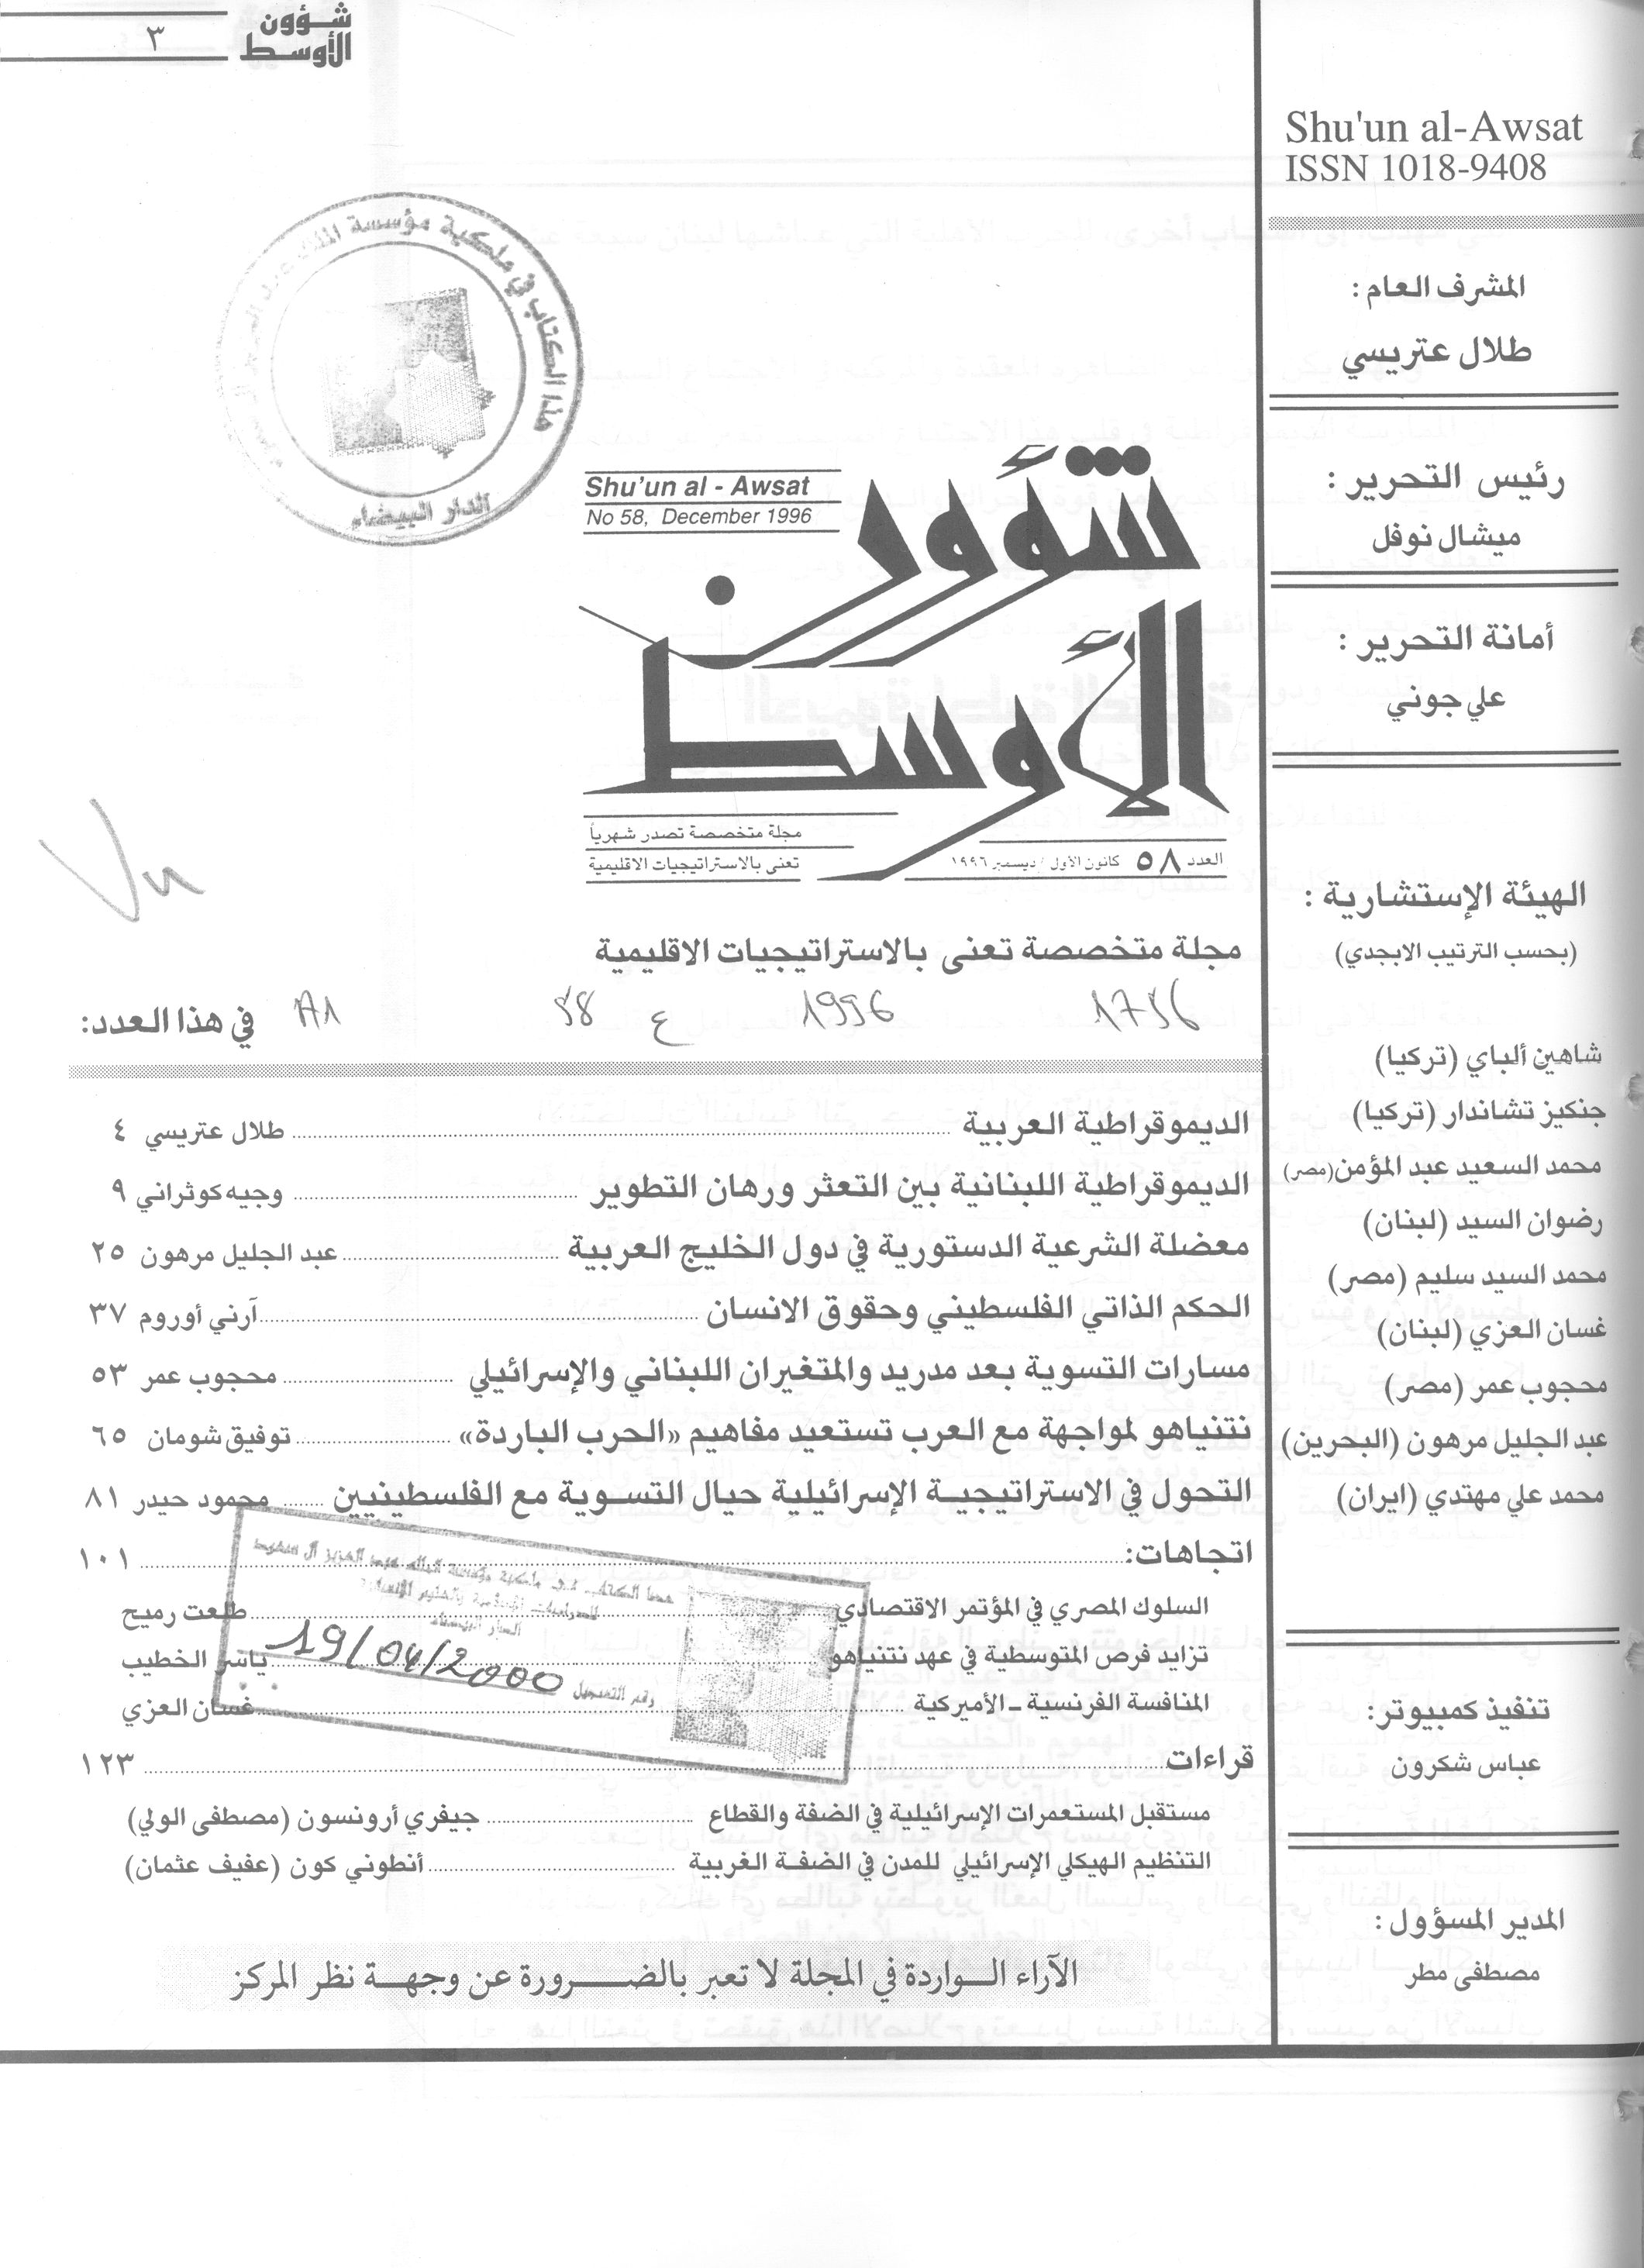 شؤون
الأوسط
٣
Shu'un al-Awsat
ISSN 1018-9408
المشرف العام :
طلال عتريسي
رئيس التحرير :
ميشال نوفل
أمانة التحرير :
علي جوني
الهيئة الإستشارية :
(بحسب الترتيب الابجدي)
شاهين ألباي (تركيا)
جنكيز تشاندار (تركيا)
محمد السعيد عبد المؤمن (مصر)
رضوان السيد (لبنان)
محمد السيد سليم (مصر)
غسان العزي (لبنان)
محجوب عمر (مصر)
عبد الجليل مرهون (البحرين)
محمد علي مهتدي (ايران)
تنفيذ كمبيوتر:
عباس شكرون
المدير المسؤول :
مصطفى مطر
هذا الكتاب في ملكية مؤسسة الملك عبد العزيز
الدار البيضاء
Shu'un al - Awsat
No 58, December 1996
شؤون
الأوسط
مجلة متخصصة تصدر شهرياً
تعنى بالاستراتيجيات الاقليمية
العدد ٥٨ كانون الأول / ديسمبر ١٩٩٦
Vu
مجلة متخصصة تعنى بالاستراتيجيات الاقليمية
1756 1996 ع 58
في هذا العدد:
الديموقراطية العربية طلال عتريسي ٤
الديموقراطية اللبنانية بين التعثر ورهان التطوير وجيه كوثراني ٩
معضلة الشرعية الدستورية في دول الخليج العربية عبد الجليل مرهون ٢٥
الحكم الذاتي الفلسطيني وحقوق الانسان آرني أوروم ٣٧
مسارات التسوية بعد مدريد والمتغيران اللبناني والإسرائيلي محجوب عمر ٥٣
نتنياهو لمواجهة مع العرب تستعيد مفاهيم «الحرب الباردة» توفيق شومان ٦٥
التحول في الاستراتيجية الإسرائيلية حيال التسوية مع الفلسطينيين محمود حيدر ٨١
اتجاهات: ١٠١
السلوك المصري في المؤتمر الاقتصادي طلعت رميح
تزايد فرص المتوسطية في عهد نتنياهو ياسر الخطيب
المنافسة الفرنسية ـ الأميركية غسان العزي
رقم التسجيل
19/04/2000
قراءات ١٢٣
مستقبل المستعمرات الإسرائيلية في الضفة والقطاع جيفري أرونسون (مصطفى الولي)
التنظيم الهيكلي الإسرائيلي للمدن في الضفة الغربية أنطوني كون (عفيف عثمان)
الآراء الواردة في المجلة لا تعبر بالضرورة عن وجهة نظر المركز